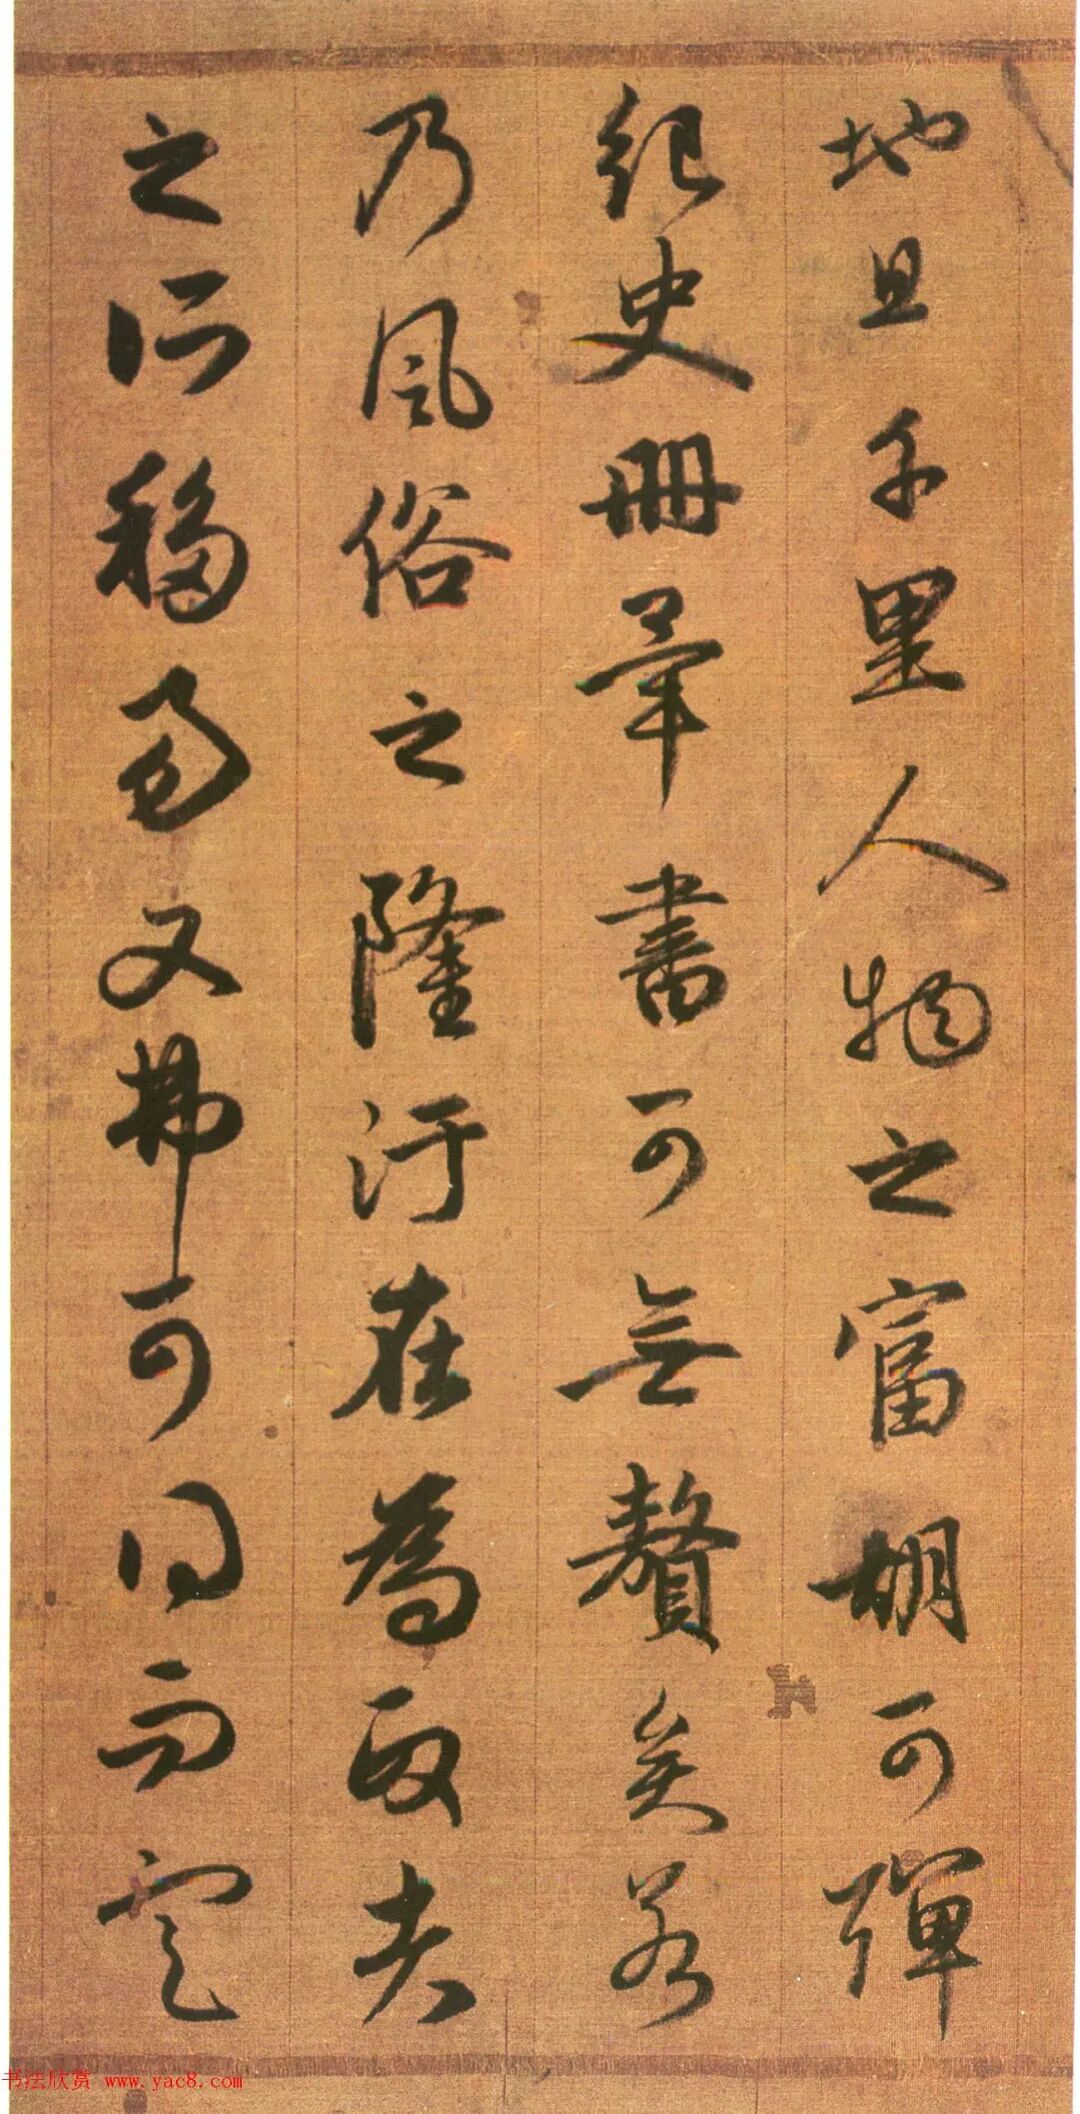 地且千里人物之富胡可殫
紀史冊畢書可無贅矣若
乃風俗之隆汙在為政者
之所移易又弗可同而定
书法欣赏 www.yac8.com